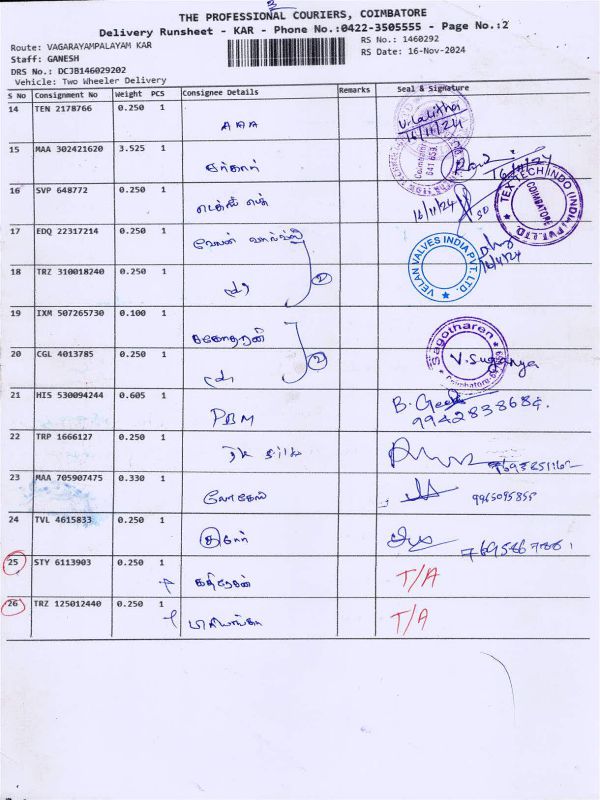 THE PROFESSIONAL COURIERS, COIMBATORE
Delivery Runsheet - KAR - Phone No.:0422-3505555 - Page No.:2
Route: VAGARAYAMPALAYAM KAR
RS No.: 1460292
Staff: GANESH
RS Date: 16-Nov-2024
DRS No.: DCJB146029202
Vehicle: Two Wheeler Delivery
S No Consignment No Weight PCS Consignee Details Remarks Seal & Signature
14 TEN 2178766 0.250 1 AAA V. Lalitha
16/11/24
15 MAA 302421620 3.525 1
16/11/24
TEX TECH INDO (INDIA) PVT. LTD.
COIMBATORE
16 SVP 648772 0.250 1 16/11/24
17 EDQ 22317214 0.250 1 வேலன் வால்வ்ஸ்
VELAN VALVES INDIA PVT. LTD.
18 TRZ 310018240 0.250 1 2
19 IXM 507265730 0.100 1 சகோதரன்
Sagotharen
20 CGL 4013785 0.250 1 2 V. Suganya
21 HIS 530094244 0.605 1 PBM B. Geetha
9942838684
22 TRP 1666127 0.250 1
23 MAA 705907475 0.330 1 லோகேஸ் 9965095855
24 TVL 4615833 0.250 1 கிஷோர்
25 STY 6113903 0.250 1 கதிரேசன் T/A
26 TRZ 125012440 0.250 1 பிரியங்கா T/A